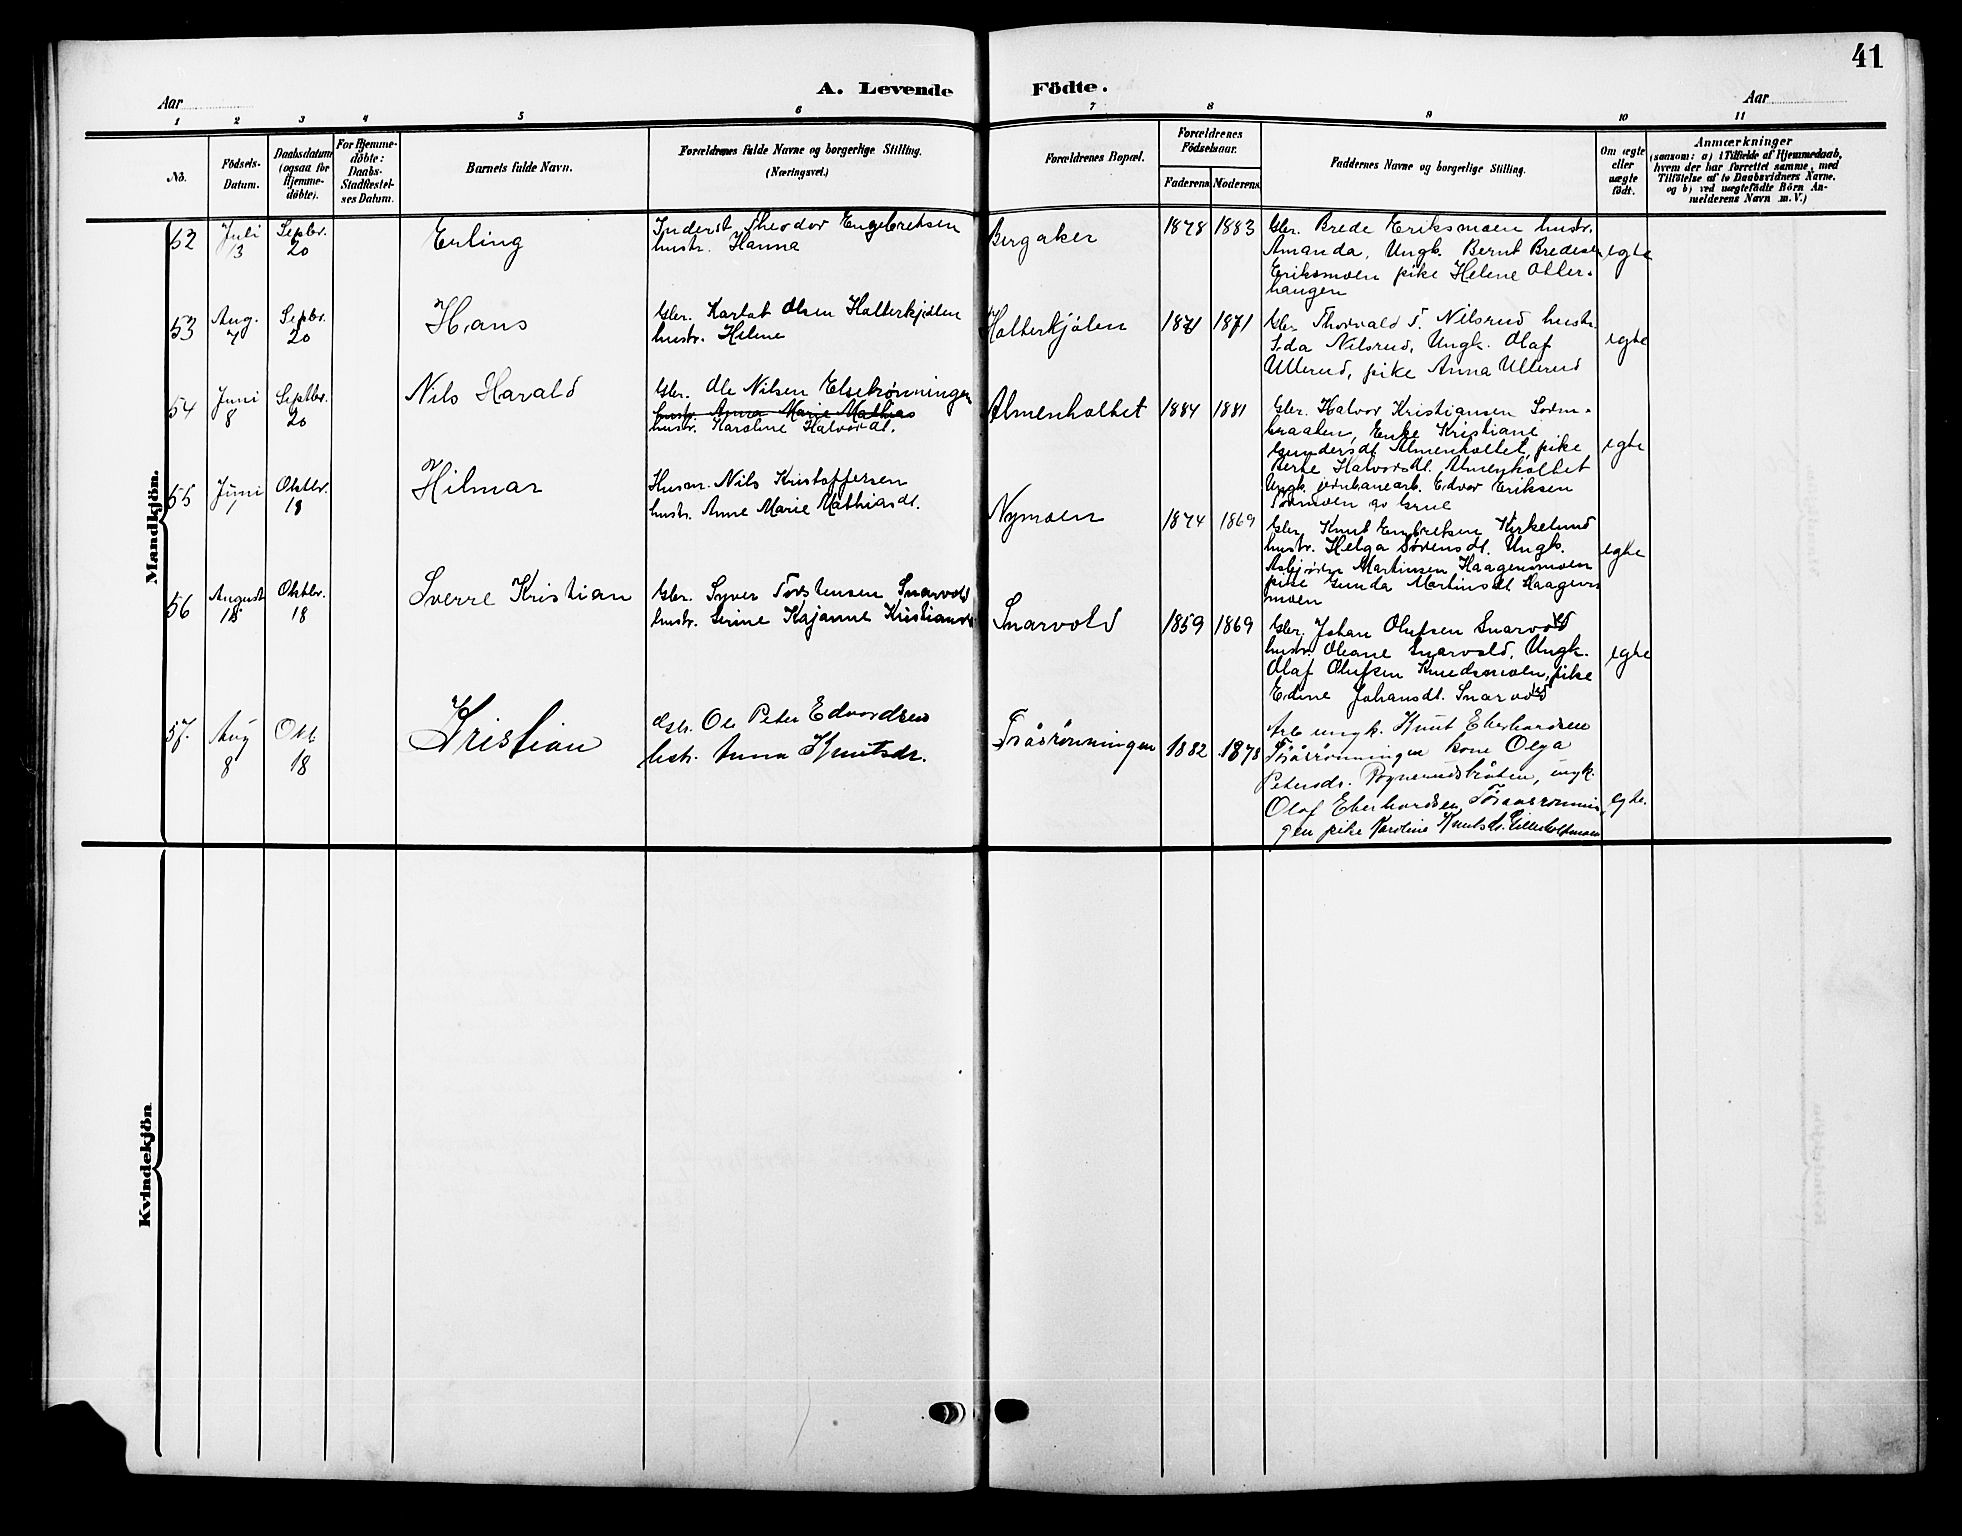 41
A. Levende Födte.
Aar
Aar
1 2 3 4 5 6 7 8 9 10 11
No.
Födsels-
Datum.
Daabsdatum
(ogsaa for
Hjemme-
døbte).
For Hjemme-
døbte:
Daabs-
Stadfæstel-
ses Datum.
Barnets fulde Navn.
Forældrenes fulde Navne og borgerlige Stilling.
(Næringsvei.)
Forældrenes Bopæl.
Forældrenes
Födselsaar.
Faderens
Moderens
Faddernes Navne og borgerlige Stilling.
Om ægte
eller
uægte
födt.
Anmærkninger
(saasom: a) i Tilfælde af Hjemmedaab,
hvem der har forrettet samme, med
Tilføielse af to Daabsvidners Navne,
og b) ved uægtefödte Börn An-
melderens Navn m. V.)
Mandkjön.
52
Juli
13
Sepbr.
20
Erling
Inderst Theodor Engebretsen
hustr. Hanna
Bergaker
1878
1883
Gbr. Brede Eriksmoen hustr.
Amanda, Ungk. Bernt Bredesen
Eriksmoen pike Helene Oller-
haugen
egte
53
Aug.
7
Sepbr.
20
Hans
Gbr. Karlot Olsen Halterkjølen
hustr. Helene
Halterkjølen
1871
1871
Gbr. Thorvald T. Nilsrud hustr.
Ida Nilsrud, Ungk. Olaf
Ullerud, pike Anna Ullerud
egte
54
Juni
8
Septbr.
20
Nils Harald
Gbr. Ole Nilsen Elserønningen
hustr. Anna Marie Mathias
hustr. Karoline Halvorsdt.
Almenholtet
1884
1881
Gbr. Halvor Kristiansen Sorm-
braaten, Enke Kristiane
Gundersdt Almenholtet, pike
Berte Halvorsdt. Almenholtet
Ungk. jernbanearb. Edvor Eriksen
Tormoen av Grue
egte
55
Juni
1
Oktbr.
18
Hilmar
Husm. Nils Kristoffersen
hustr. Anne Marie Mathiasdt.
Nymoen
1874
1869
Gbr. Knut Engbretsen Kirkelund
hustr. Helga Sørensdt. Ungk.
Asbjörn Martinsen Haagensmoen
pike Gunda Martinsdt Haagens
moen
egte
56
August
18
Oktbr.
18
Sverre Kristian
Gbr. Syver Torstensen Snarvold
hustr. Serine Kajanne Kristiansdt
Snarvold
1859
1869
Gbr. Johan Olufsen Snarvold
hustr. Oleane Snarvold, Ungk.
Olaf Olufsen Knudsmoen, pike
Edine Johansdt. Snarvold
egte
57.
Aug
8
Okt
18
Kristian
Gbr. Ole Peter Edvardsen
hstr. Anna Knutsdr.
Tråsrønningen
1882
1878
Arb ungk. Knut Eberhardsen
Tråsrønningen kone Olga
Petersdr. Rognerudsbråten, ungk.
Olaf Eberhardsen, Traasrønnin
gen pike Karoline Knutsdr. Lilleholtmoen
egte.
Kvindekjön